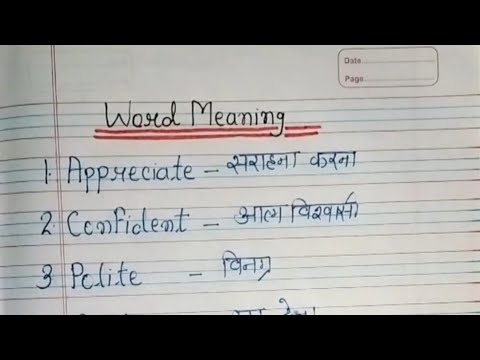 Date
Page
Word Meaning
1. Appreciate - सराहना करना
2. Confident - आत्म विश्वासी
3 Polite - विनम्र